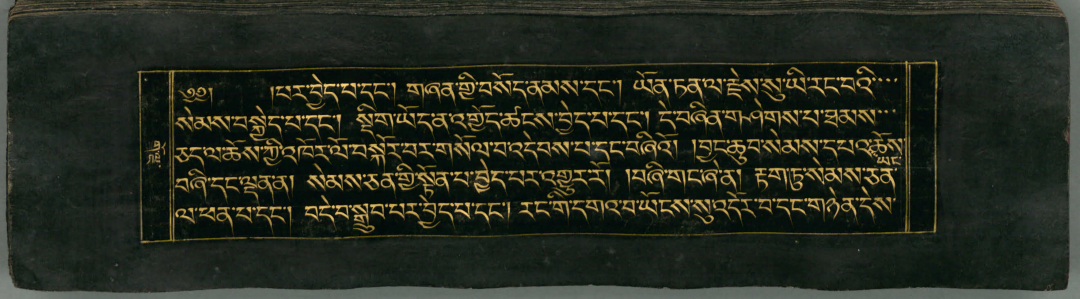 ༄༅། །པར་བྱེད་པ་དང་། གཞན་གྱི་བསོད་ནམས་དང་། ཡོན་ཏན་ལ་རྗེས་སུ་ཡི་རང་བའི་
སེམས་བསྐྱེད་པ་དང་། སྡིག་ཡོད་ན་འགྱོད་ཚངས་བྱེད་པ་དང་། དེ་བཞིན་གཤེགས་པ་ཐམས་
ཅད་ལ་ཆོས་ཀྱི་འཁོར་ལོ་བསྐོར་བར་གསོལ་བ་འདེབས་པ་དང་བཞིའོ། །བྱང་ཆུབ་སེམས་དཔའ་ཆོས།
ཡང་
བཞི་དང་ལྡན་ན། སེམས་ཅན་གྱི་སྟོན་པ་བྱེད་པར་འགྱུར་རོ། །བཞི་གང་ཞེ་ན། རྟག་ཏུ་སེམས་ཅན་
ལ་ཕན་པ་དང་། བདེ་བ་སྒྲུབ་པར་བྱེད་པ་དང་། རང་གི་དགའ་བ་ཡོངས་སུ་འདོར་བ་དང་གཉེན་དེས་